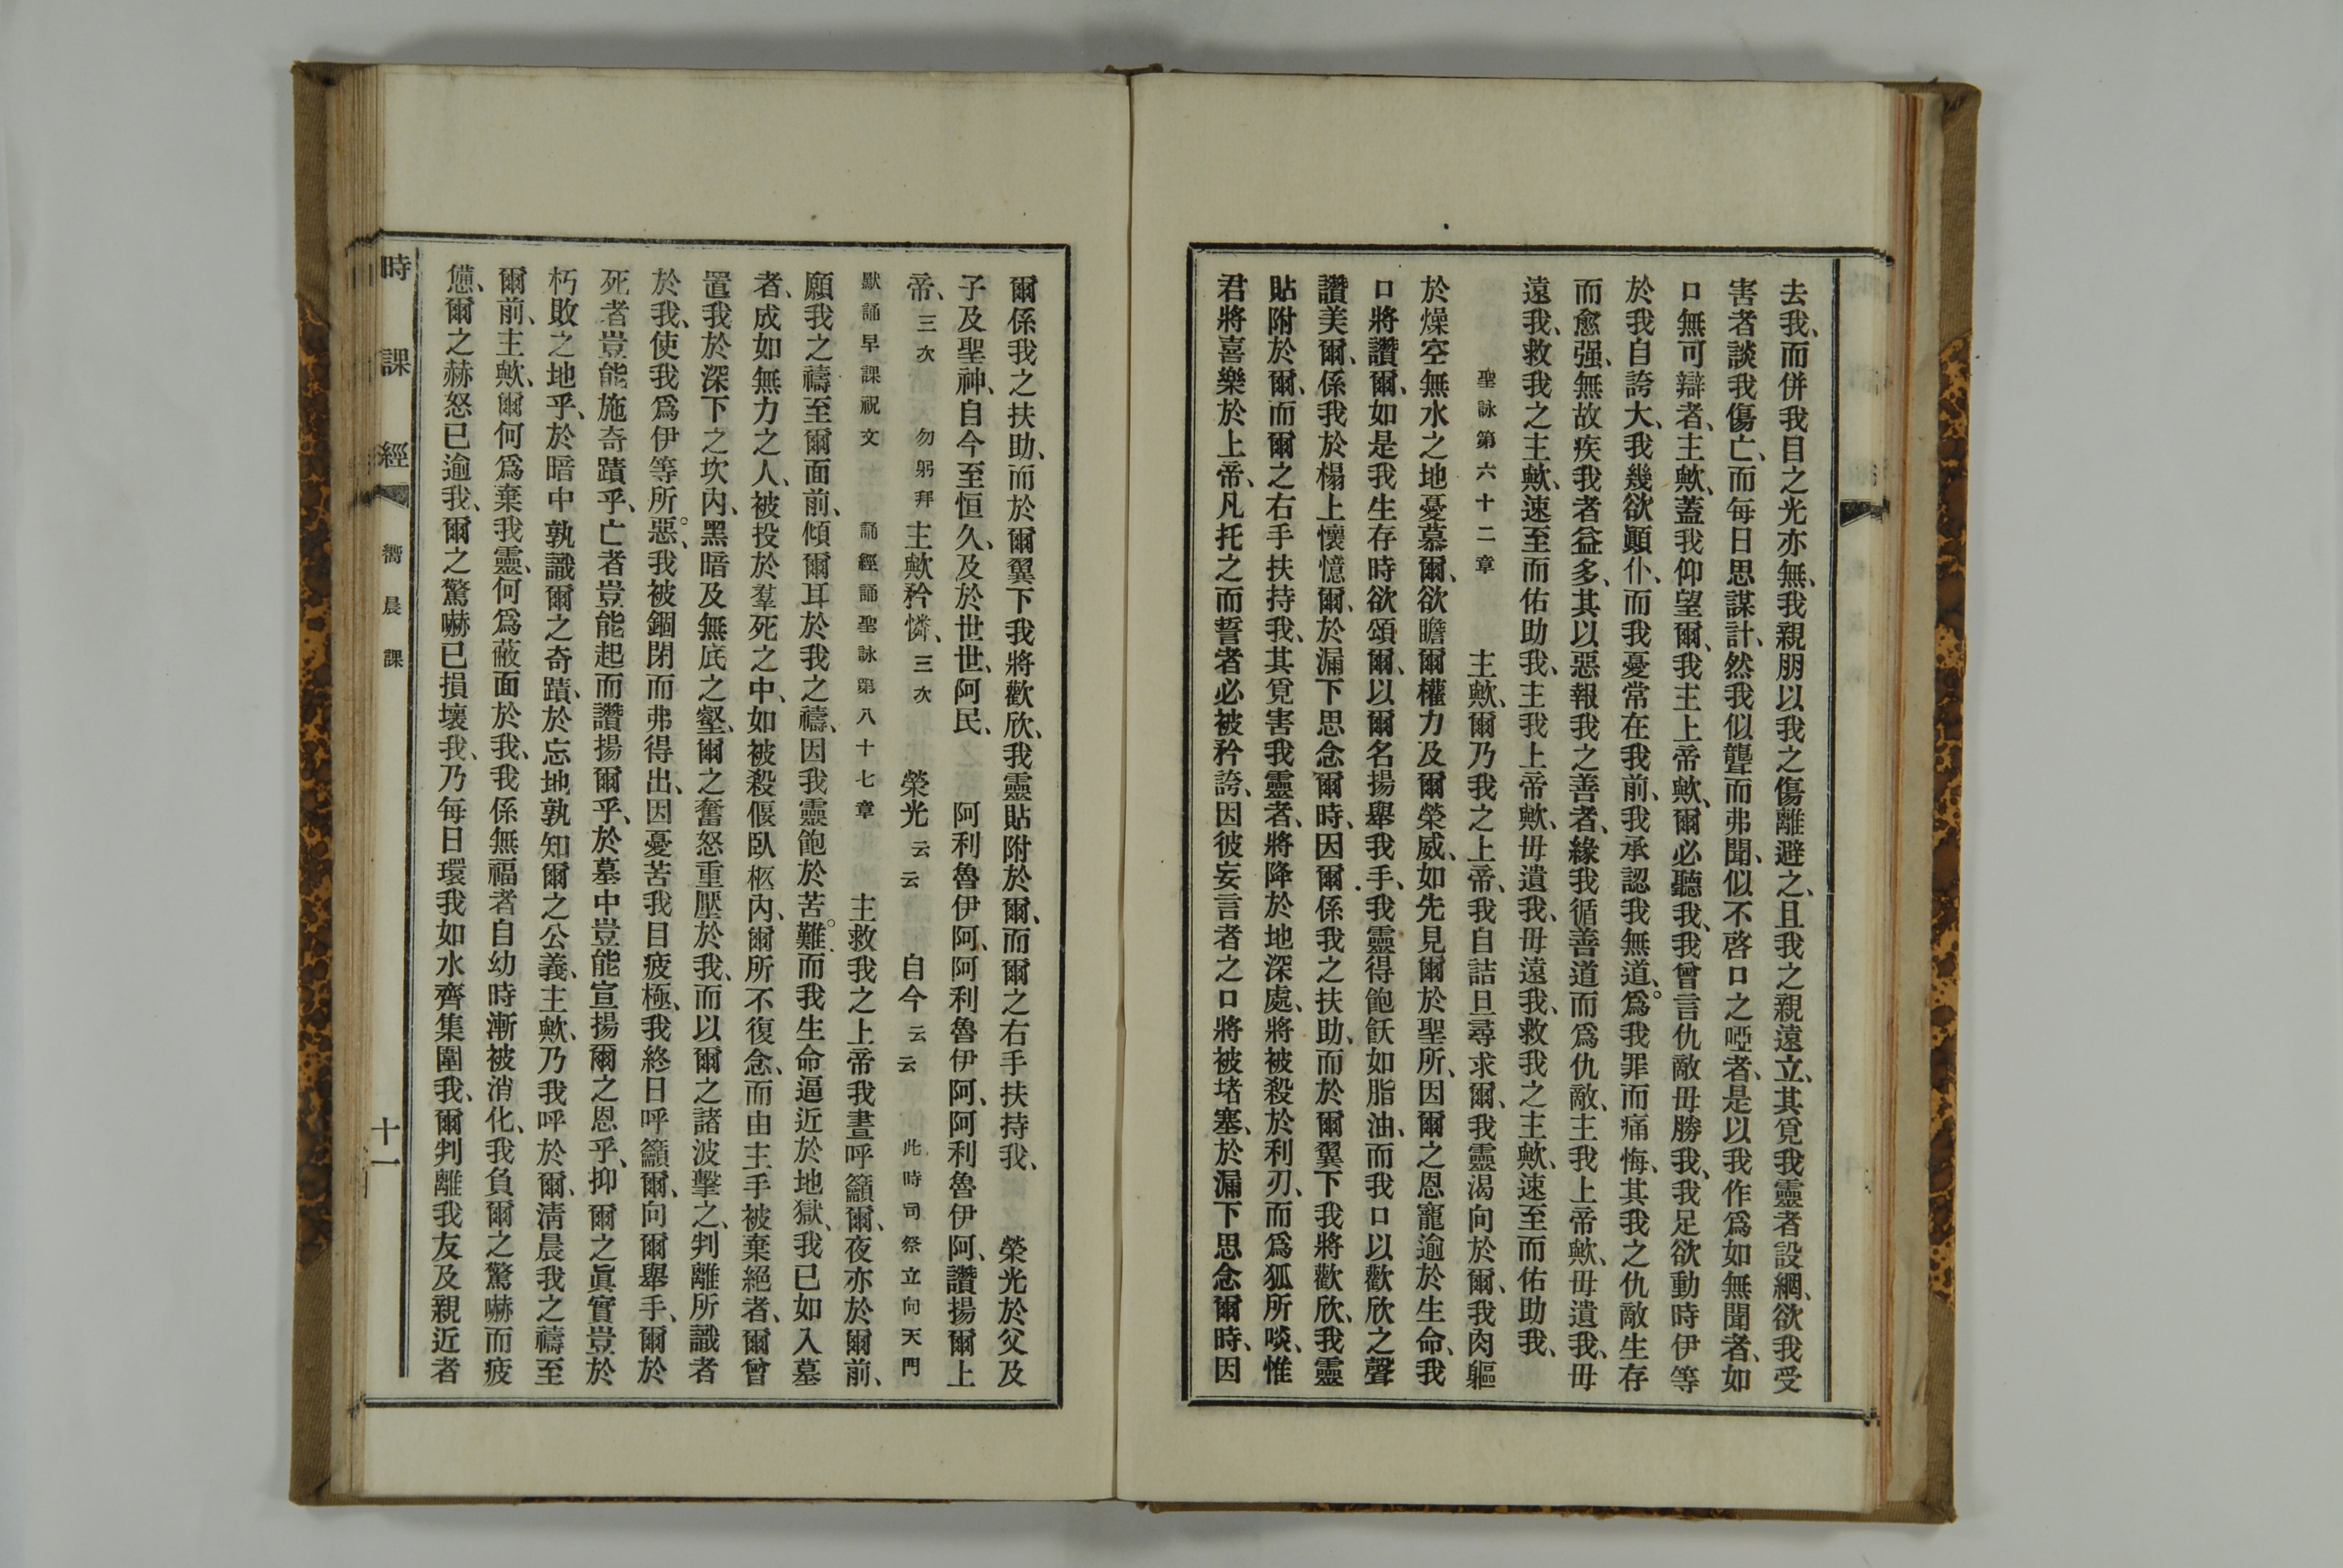 去我、而併我目之光亦無、我親朋以我之傷離避之、且我之親遠立、其覓我靈者設網、欲我受
害者談我傷亡、而每日思謀計、然我似聾而弗聞、似不啓口之啞者、是以我作爲如無聞者、如
口無可辯者、主歟、蓋我仰望爾、我主上帝歟、爾必聽我、我曾言仇敵毋勝我、我足欲動時伊等
於我自誇大、我幾欲顚仆、而我憂常在我前、我承認我無道、爲我罪而痛悔、其我之仇敵生存
而愈强、無故疾我者益多、其以惡報我之善者、緣我循善道而爲仇敵、主我上帝歟、毋遺我、毋
遠我、救我之主歟、速至而佑助我、主我上帝歟、毋遺我、毋遠我、救我之主歟、速至而佑助我、
聖詠第六十二章 主歟、爾乃我之上帝、我自詰旦尋求爾、我靈渴向於爾、我肉軀
於燥空無水之地憂慕爾、欲瞻爾權力及爾榮威、如先見爾於聖所、因爾之恩寵逾於生命、我
口將讚爾、如是我生存時欲頌爾、以爾名揚舉我手、我靈得飽飫如脂油、而我口以歡欣之聲
讚美爾、係我於榻上懷憶爾、於漏下思念爾時、因爾係我之扶助、而於爾翼下我將歡欣、我靈
貼附於爾、而爾之右手扶持我、其覓害我靈者、將降於地深處、將被殺於利刃、而爲狐所啖、惟
君將喜樂於上帝、凡托之而誓者必被矜誇、因彼妄言者之口將被堵塞、於漏下思念爾時、因
爾係我之扶助、而於爾翼下我將歡欣、我靈貼附於爾、而爾之右手扶持我、 榮光於父及
子及聖神、自今至恒久、及於世世、阿民、 阿利魯伊阿、阿利魯伊阿、阿利魯伊阿、讚揚爾上
帝、三次 勿躬拜 主歟矜憐、三次 榮光云云 自今云云 此時司祭立向天門
默誦早課祝文 誦經誦聖詠第八十七章 主救我之上帝我晝呼籲爾、夜亦於爾前、
願我之禱至爾面前、傾爾耳於我之禱、因我靈飽於苦難而我生命逼近於地獄、我已如入墓
者、成如無力之人、被投於羣死之中、如被殺偃臥柩內、爾所不復念、而由主手被棄絕者、爾曾
置我於深下之坎內、黑暗及無底之壑、爾之奮怒重壓於我、而以爾之諸波擊之、判離所識者
於我、使我爲伊等所惡、我被錮閉而弗得出、因憂苦我目疲極、我終日呼籲爾、向爾舉手、爾於
死者豈能施奇蹟乎、亡者豈能起而讚揚爾乎、於墓中豈能宣揚爾之恩乎、抑爾之眞實豈於
朽敗之地乎、於暗中孰識爾之奇蹟、於忘地孰知爾之公義、主歟、乃我呼於爾、淸晨我之禱至
爾前、主歟、爾何爲棄我靈、何爲蔽面於我、我係無福者自幼時漸被消化、我負爾之驚嚇而疲
憊、爾之赫怒已逾我、爾之驚嚇已損壞我、乃每日環我如水齊集圍我、爾判離我友及親近者
時課經 嚮晨課 十一